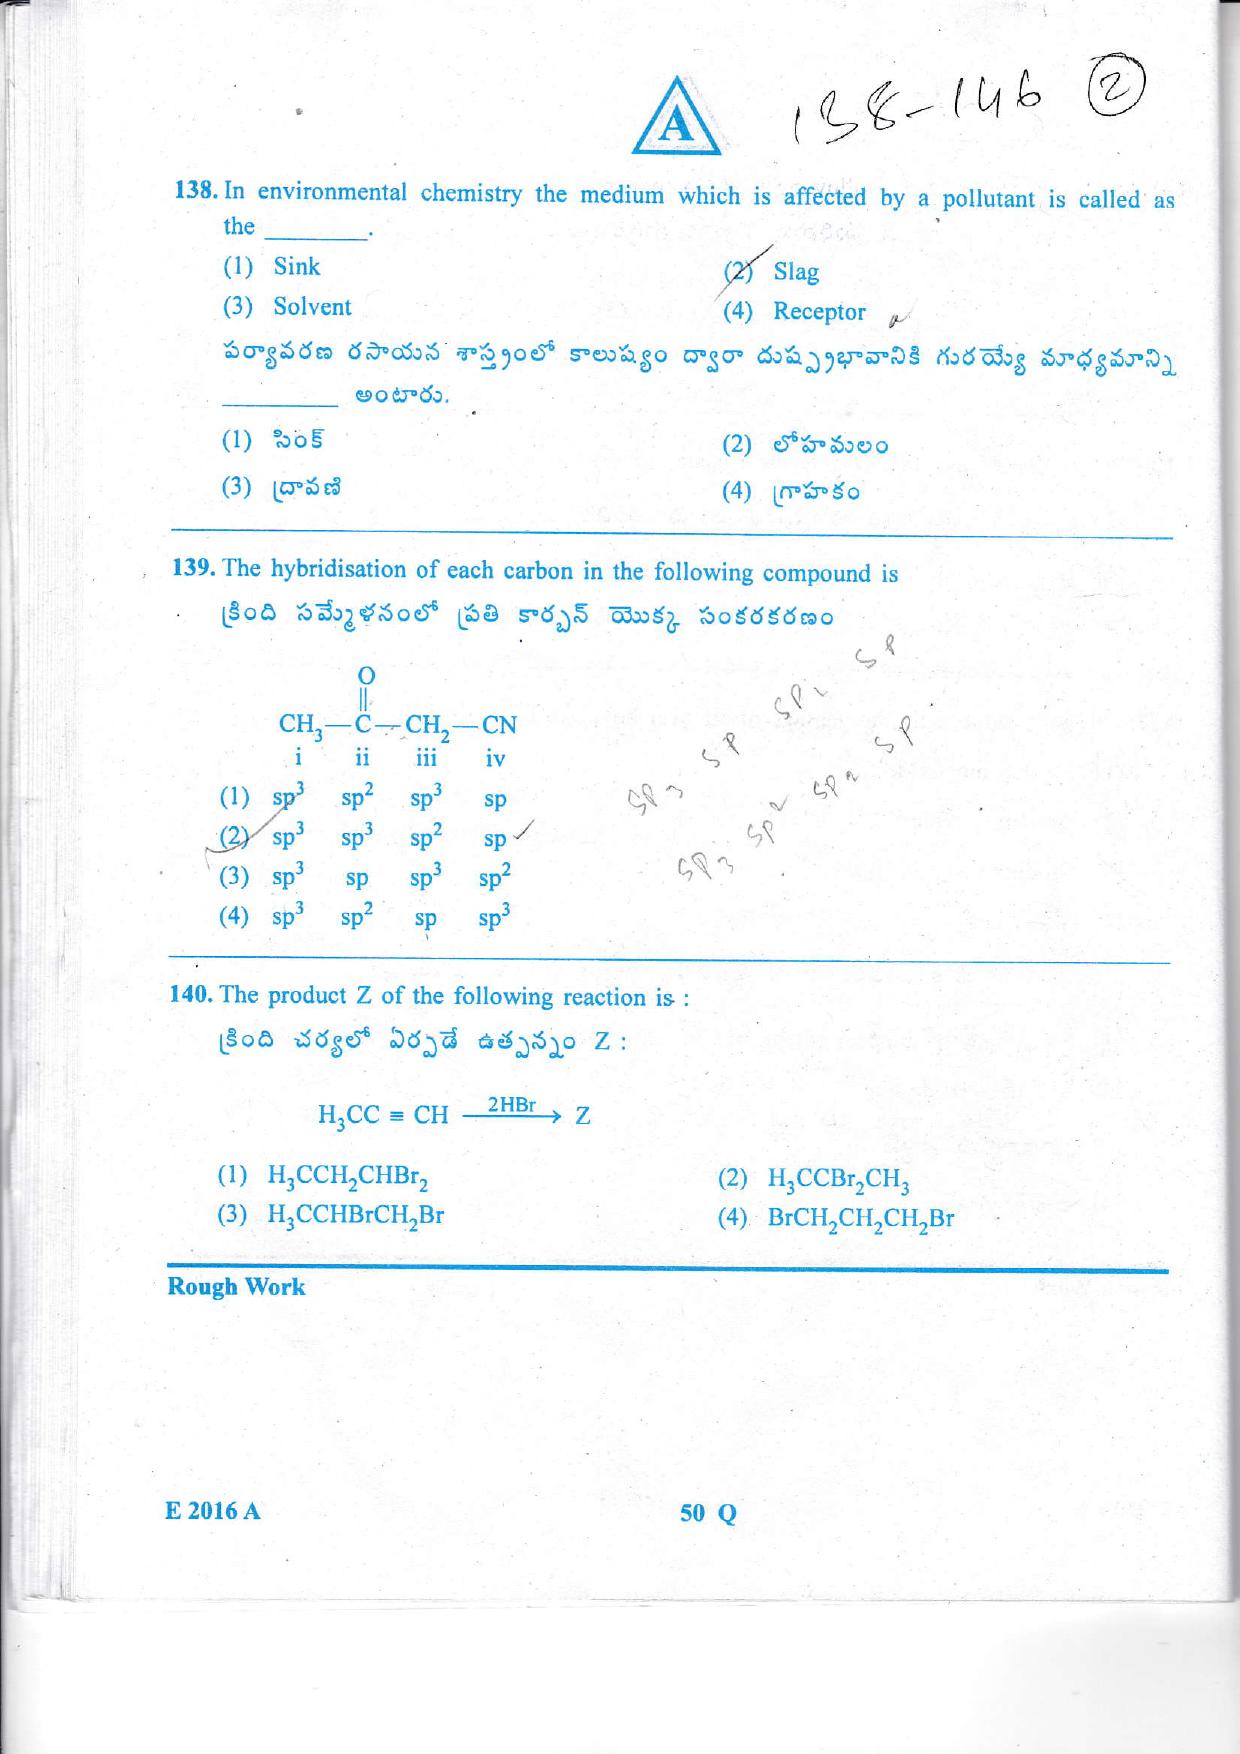 A
138-146 2
138. In environmental chemistry the medium which is affected by a pollutant is called as
the ________.
(1) Sink
(2) Slag
(3) Solvent
(4) Receptor
పర్యావరణ రసాయన శాస్త్రంలో కాలుష్యం ద్వారా దుష్ప్రభావానికి గురయ్యే మాధ్యమాన్ని
________ అంటారు.
(1) సింక్
(2) లోహమలం
(3) ద్రావణి
(4) గ్రాహకం
139. The hybridisation of each carbon in the following compound is
క్రింది సమ్మేళనంలో ప్రతి కార్బన్ యొక్క సంకరకరణం
O
||
CH₃—C—CH₂—CN
i ii iii iv
(1) sp³ sp² sp³ sp
(2) sp³ sp³ sp² sp
(3) sp³ sp sp³ sp²
(4) sp³ sp² sp sp³
SP3 SP SP2 SP
SP3 SP2 SP2 SP
140. The product Z of the following reaction is :
క్రింది చర్యలో ఏర్పడే ఉత్పన్నం Z :
H₃CC ≡ CH 2HBr→ Z
(1) H₃CCH₂CHBr₂
(2) H₃CCBr₂CH₃
(3) H₃CCHBrCH₂Br
(4) BrCH₂CH₂CH₂Br
Rough Work
E 2016 A
50 Q